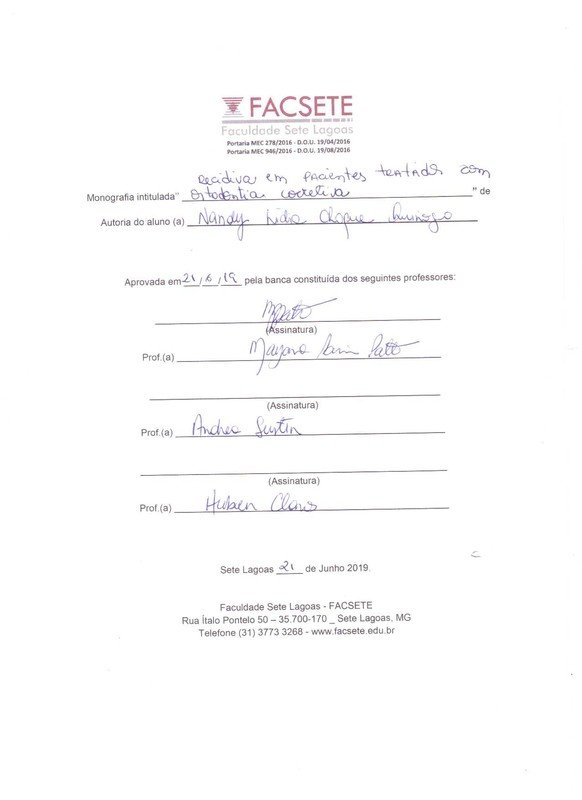 FACSETE
Faculdade Sete Lagoas
Portaria MEC 278/2016 - D.O.U. 19/04/2016
Portaria MEC 946/2016 - D.O.U. 19/08/2016
Recidiva em pacientes tratados com
Monografia intitulada" ortodontia corretiva " de
Autoria do aluno (a) Nandy Lidia Choque
Aprovada em 21/6/19 pela banca constituída dos seguintes professores:
(Assinatura)
Prof.(a) Patto
(Assinatura)
Prof.(a) Andrea
(Assinatura)
Prof.(a)
Sete Lagoas 21 de Junho 2019.
Faculdade Sete Lagoas - FACSETE
Rua Ítalo Pontelo 50 – 35.700-170 _ Sete Lagoas, MG
Telefone (31) 3773 3268 - www.facsete.edu.br